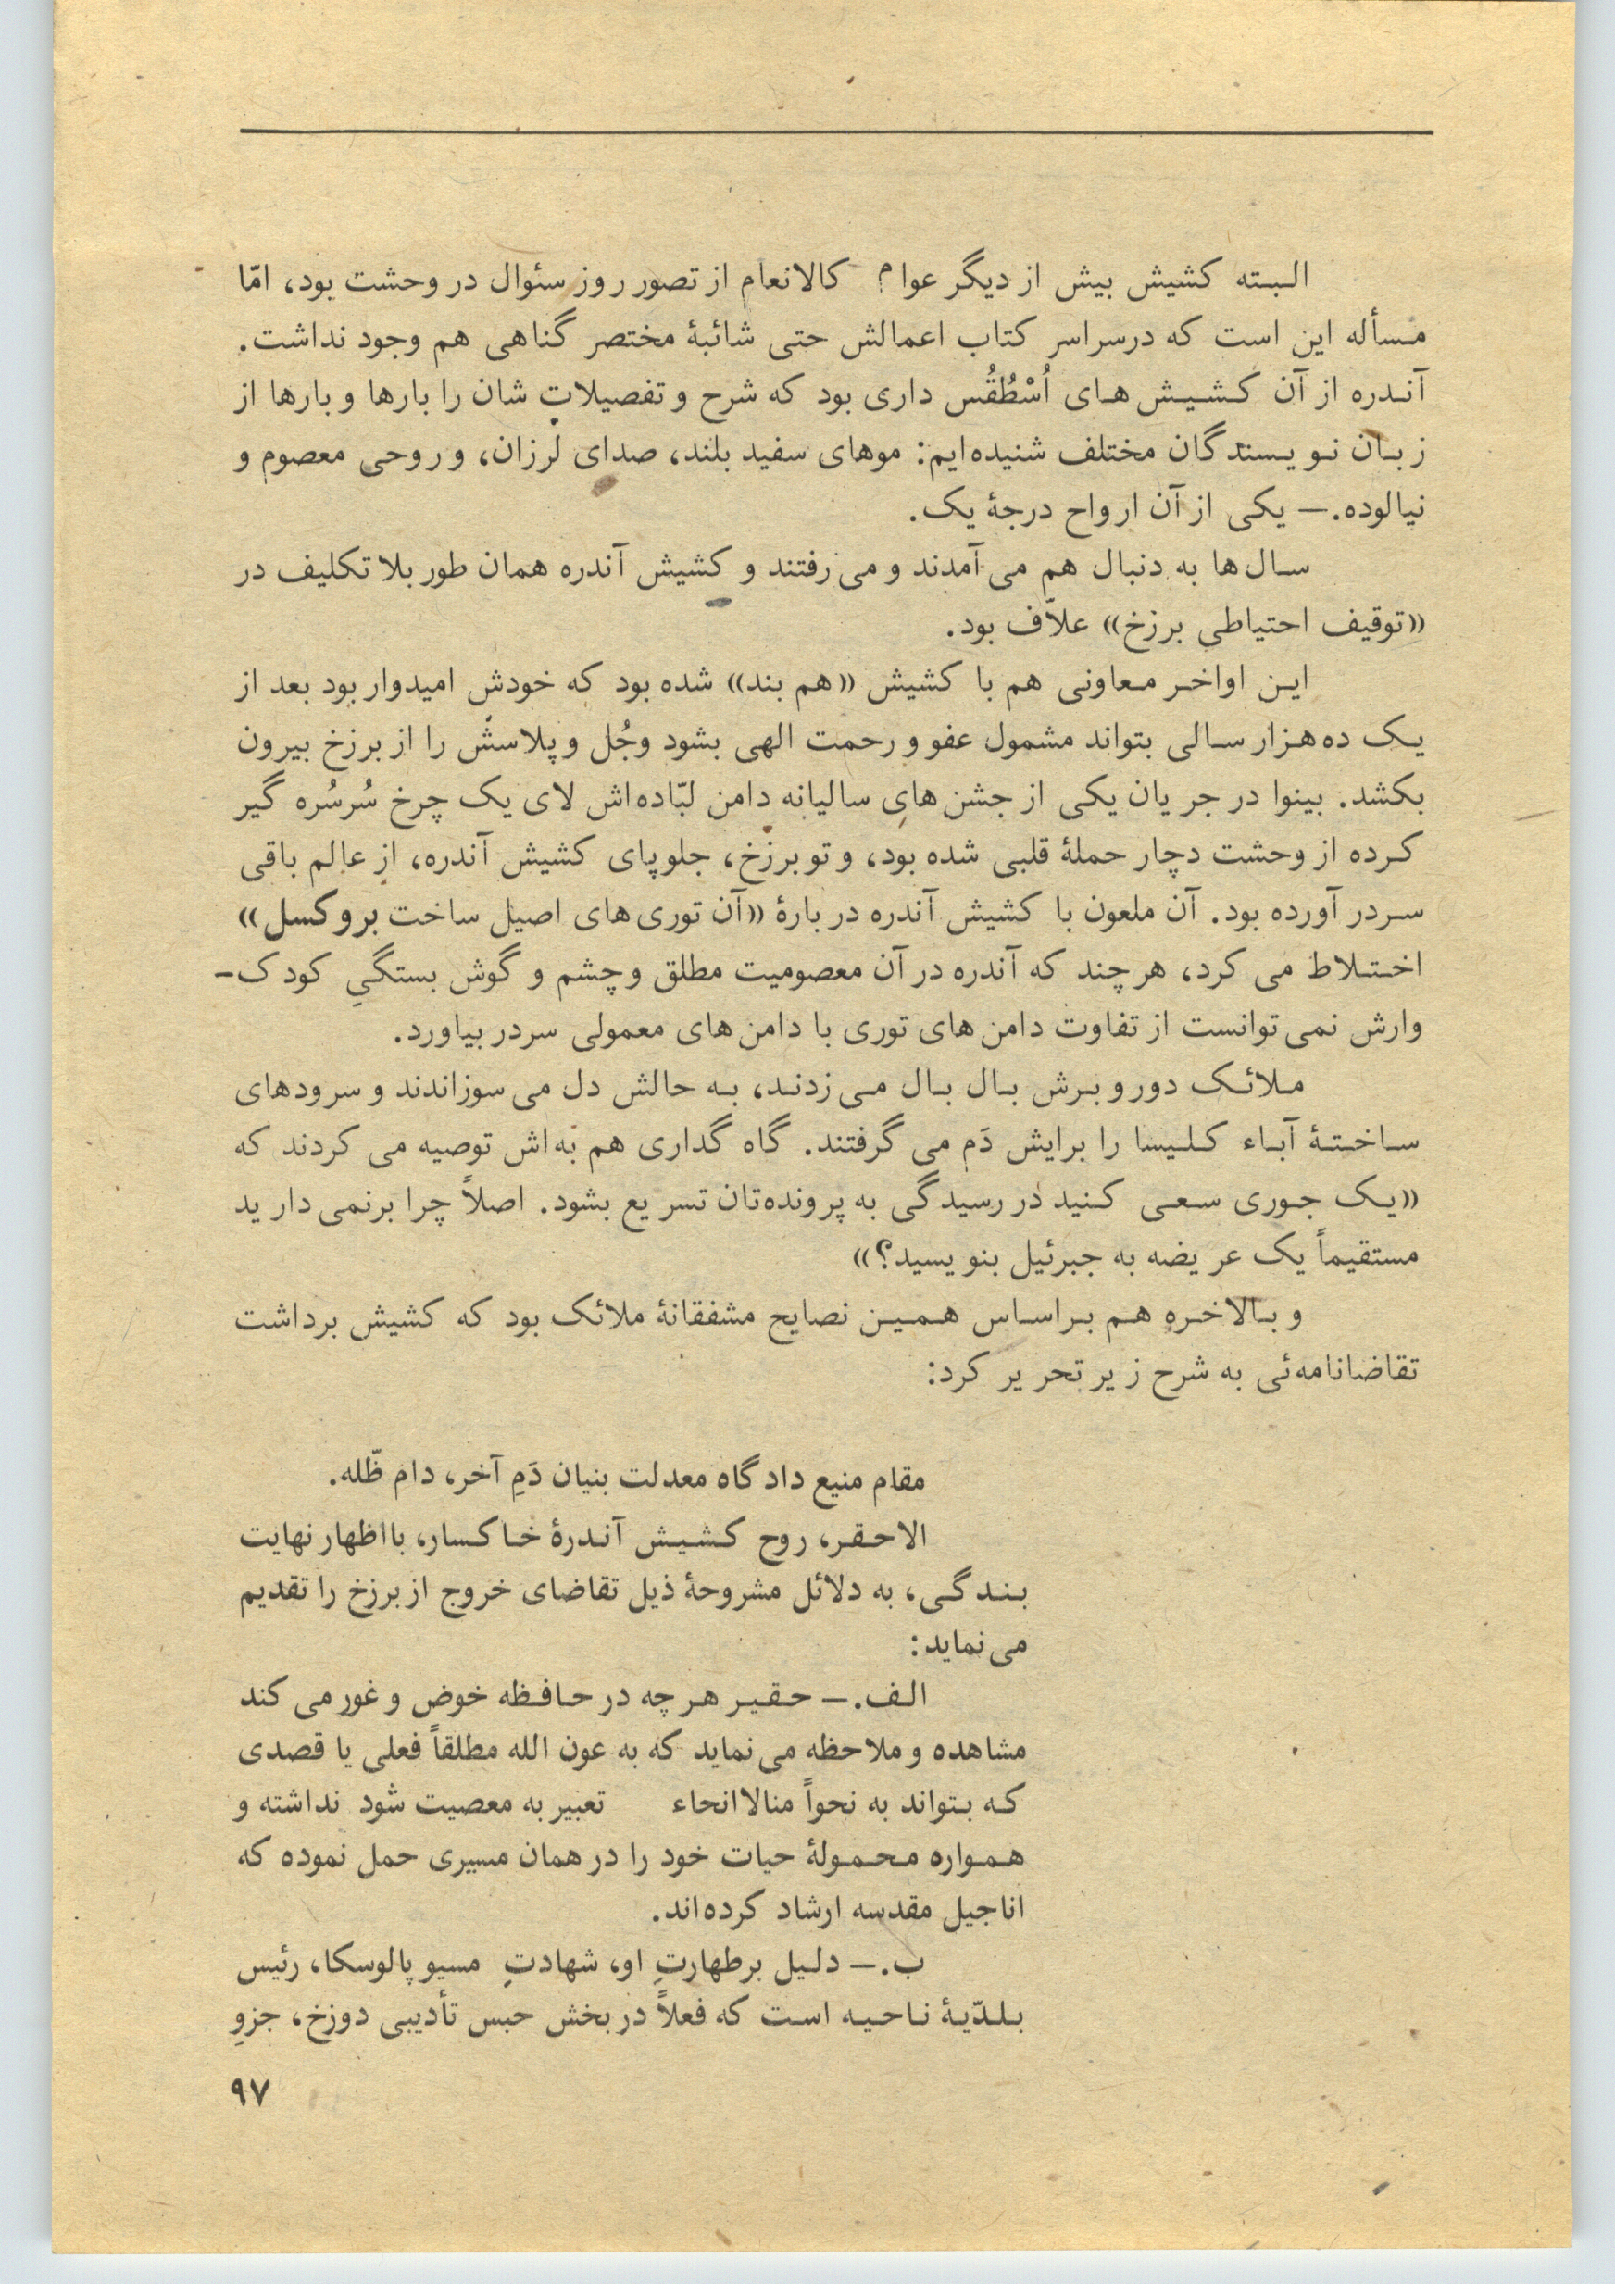 البته کشیش بیش از دیگر عوام کالانعام از تصور روز سئوال در وحشت بود، امّا
مسأله این است که درسراسر کتاب اعمالش حتی شائبهٔ مختصر گناهی هم وجود نداشت.
آندره از آن کشیش‌های اُسْطُقُس داری بود که شرح و تفصیلاتِ شان را بارها و بارها از
زبان نویسندگان مختلف شنیده‌ایم: موهای سفید بلند، صدای لرزان، و روحی معصوم و
نیالوده.— یکی از آن ارواح درجهٔ یک.
سال‌ها به دنبال هم می‌آمدند و می‌رفتند و کشیش آندره همان طور بلا تکلیف در
«توقیف احتیاطی برزخ» علاّف بود.
این اواخر معاونی هم با کشیش «هم بند» شده بود که خودش امیدوار بود بعد از
یک ده‌هزار سالی بتواند مشمول عفو و رحمت الهی بشود وجُل و پلاسش را از برزخ بیرون
بکشد. بینوا در جریان یکی از جشن‌های سالیانه دامن لبّاده‌اش لای یک چرخ سُرسُره گیر
کرده از وحشت دچار حملهٔ قلبی شده بود، و تو برزخ، جلوپای کشیش آندره، از عالم باقی
سردر آورده بود. آن ملعون با کشیش آندره دربارهٔ «آن توری‌های اصیل ساخت بروکسل»
اختلاط می کرد، هر چند که آندره در آن معصومیت مطلق و چشم و گوش بستگیِ کودک-
وارش نمی‌توانست از تفاوت دامن‌های توری با دامن‌های معمولی سردر بیاورد.
ملائک دور و برش بال بال می‌زدند، به حالش دل می‌سوزاندند و سرودهای
ساختهٔ آباء کلیسا را برایش دَم می گرفتند. گاه گداری هم به‌اش توصیه می کردند که
«یک جوری سعی کنید در رسیدگی به پرونده‌تان تسریع بشود. اصلاً چرا برنمی‌دارید
مستقیماً یک عریضه به جبرئیل بنویسید؟»
و بالاخره هم براساس همین نصایح مشفقانهٔ ملائک بود که کشیش برداشت
تقاضانامه‌ئی به شرح زیر تحریر کرد:
مقام منیع دادگاه معدلت بنیان دَمِ آخر، دام ظّله.
الاحقر، روح کشیش آندرهٔ خاکسار، با اظهار نهایت
بندگی، به دلائل مشروحهٔ ذیل تقاضای خروج از برزخ را تقدیم
می‌نماید:
الف.— حقیر هر چه در حافظه خوض و غور می کند
مشاهده و ملاحظه می‌نماید که به عون الله مطلقاً فعلی یا قصدی
که بتواند به نحواً منالاانحاء تعبیر به معصیت شود نداشته و
همواره محمولهٔ حیات خود را در همان مسیری حمل نموده که
اناجیل مقدسه ارشاد کرده‌اند.
ب.— دلیل برطهارتِ او، شهادتِ مسیو پالوسکا، رئیس
بلدّیهٔ ناحیه است که فعلاً در بخش حبس تأدیبی دوزخ، جزوِ
۹۷